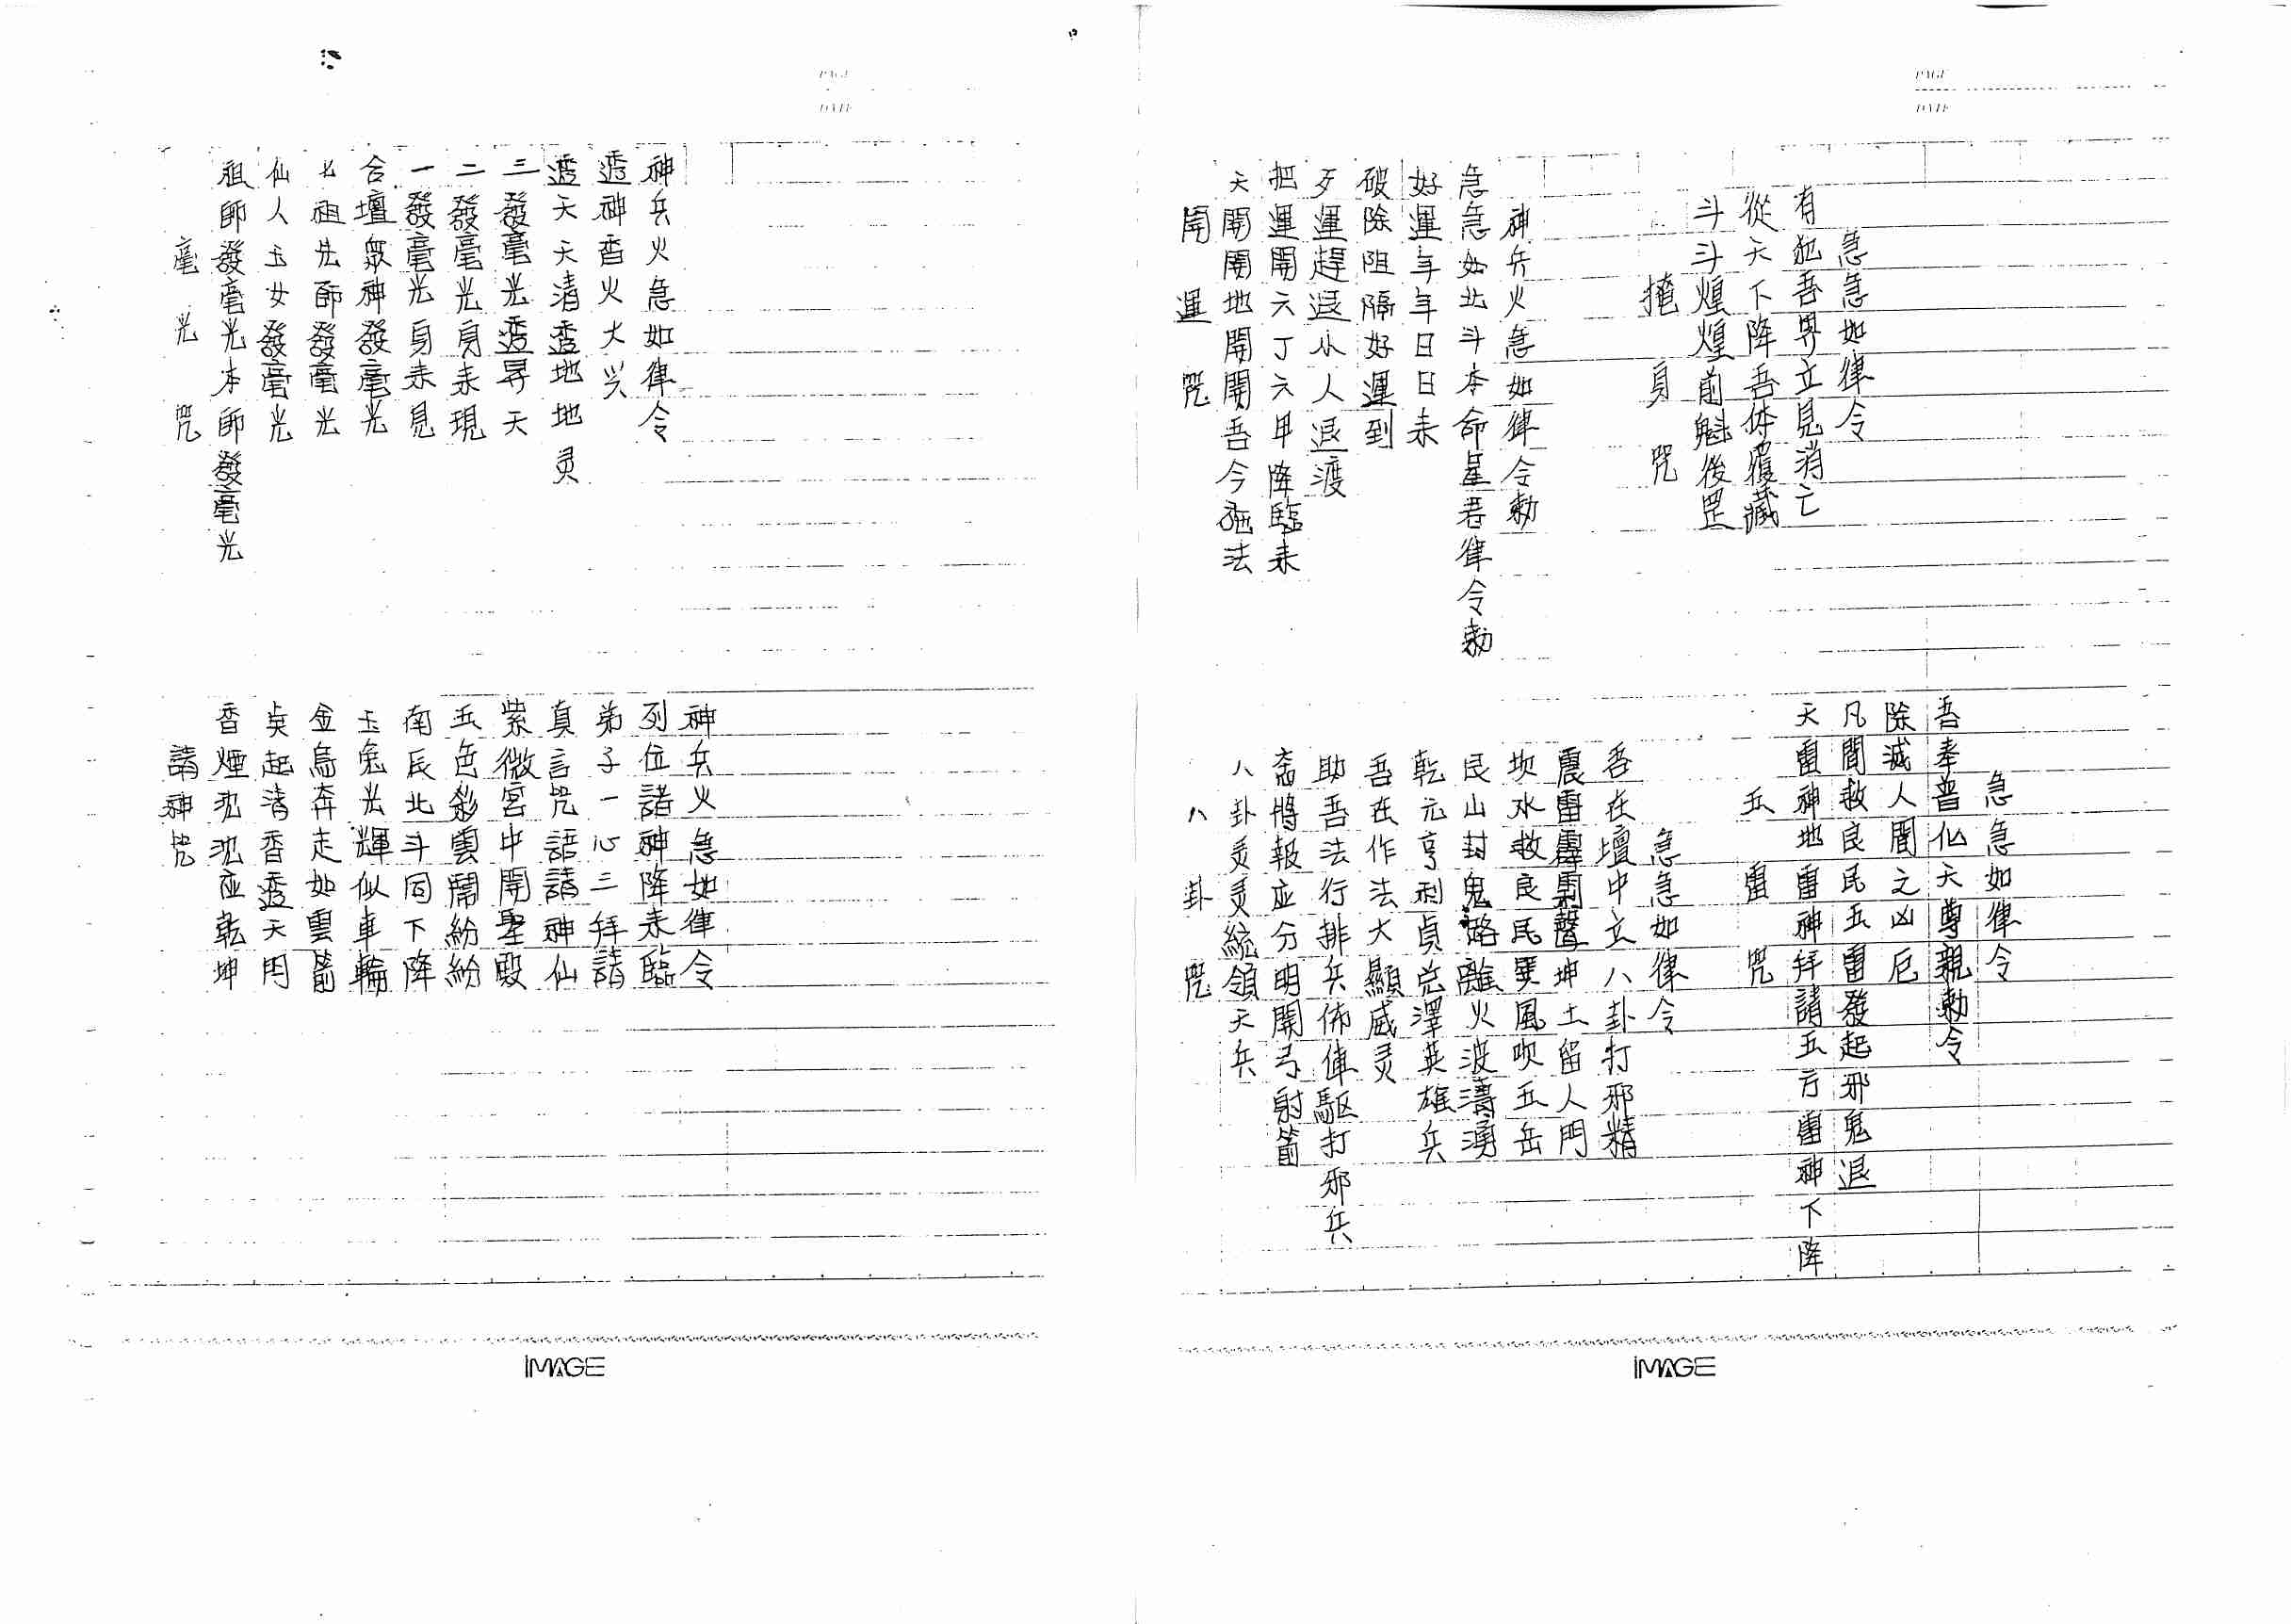 毫光咒
祖師發毫光本師發毫光
仙人玉女發毫光
七祖先師發毫光
合壇眾神發毫光
一發毫光身来見
二發毫光身来現
三發毫光透昇天
透天天清透地地灵
透神香火大兴
神兵火急如律令
請神咒
香煙沉沉应乾坤
奌起清香透天門
金烏奔走如雲箭
玉兔光輝似車輪
南辰北斗同下降
五色彩雲鬧紛紛
紫微宮中開聖殿
真言咒語請神仙
弟子一心三拜請
列位諸神降来臨
神兵火急如律令
IMAGE
PAGE
DATE
開運咒
天開開地開開吾今施法
把運開六丁六甲降臨来
歹運趕退小人退渡
破除阻隔好運到
好運年年日日来
急急如北斗本命星君律令勅
神兵火急如律令勅
掩身咒
斗斗煌煌前魁後罡
從天下降吾体覆藏
有犯吾界立見消亡
急急如律令
八卦咒
八卦灵灵統領天兵
斋將報应分明開弓射箭
助吾法行排兵佈陣驅打邪兵
吾在作法大顯威灵
乾元亨利貞兌澤英雄兵
艮山封鬼路離火波濤湧
坎水救良民巽風吹五岳
震雷霹靂聲坤土留人門
吾在壇中立八卦打邪精
急急如律令
五雷咒
天雷神地雷神拜請五方雷神下降
凡間救良民五雷發起邪鬼退
除滅人間之凶厄
吾奉普化天尊親勅令
急急如律令
IMAGE
PAGE
DATE